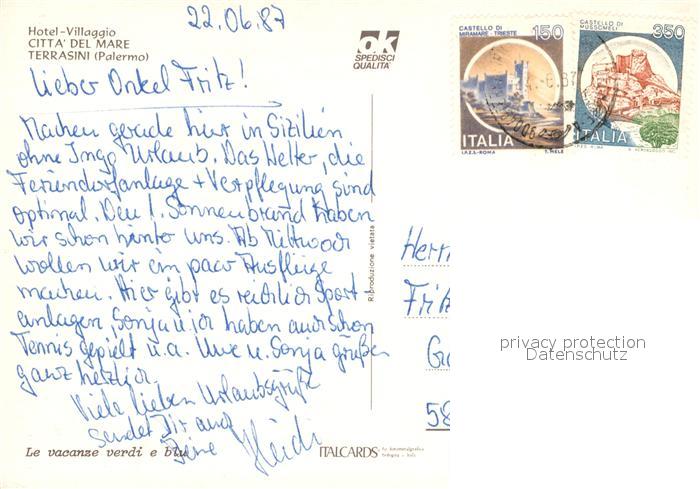 22.06.87
Hotel-Villaggio
CITTA' DEL MARE
TERRASINI (Palermo)
ok
SPEDISCI
QUALITA'
CASTELLO DI
MIRAMARE - TRIESTE
150
ITALIA
I.P.Z.S.-ROMA
T. MELE
CASTELLO DI
MUSSOMELI
350
ITALIA
Lieber Onkel Fritz!
Machen gerade hier in Sizilien
ohne Ingo Urlaub. Das Wetter, die
Feriendorfanlage + Verpflegung sind
optimal. Den 1. Sonnenbrand haben
wir schon hinter uns. Ab Mittwoch
wollen wir ein paar Ausflüge
machen. Hier gibt es reichlich Sport-
anlagen, Sonja u. ich haben auch schon
Tennis gepielt u.a. Uwe u. Sonja grüßen
ganz herzlich.
Viele lieben Urlaubsgrüße
sendet Dir auch
Deine Heidi
Riproduzione vietata
Herrn
Fritz
58
privacy protection
Datenschutz
Le vacanze verdi e blu
ITALCARDS